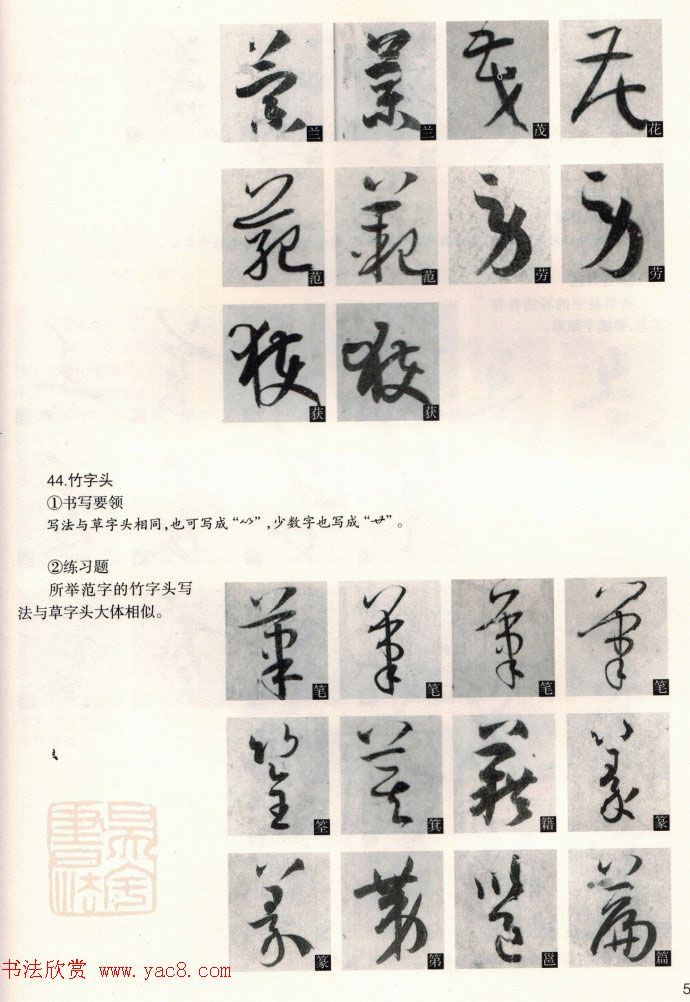 兰 兰 茂 花
范 范 劳 劳
获 获
44.竹字头
①书写要领
写法与草字头相同,也可写成“”,少数字也写成“”。
②练习题
所举范字的竹字头写
法与草字头大体相似。
笔 笔 笔 笔
筌 箕 籍 篆
篆 第 篇
书法欣赏 www.yac8.com
5